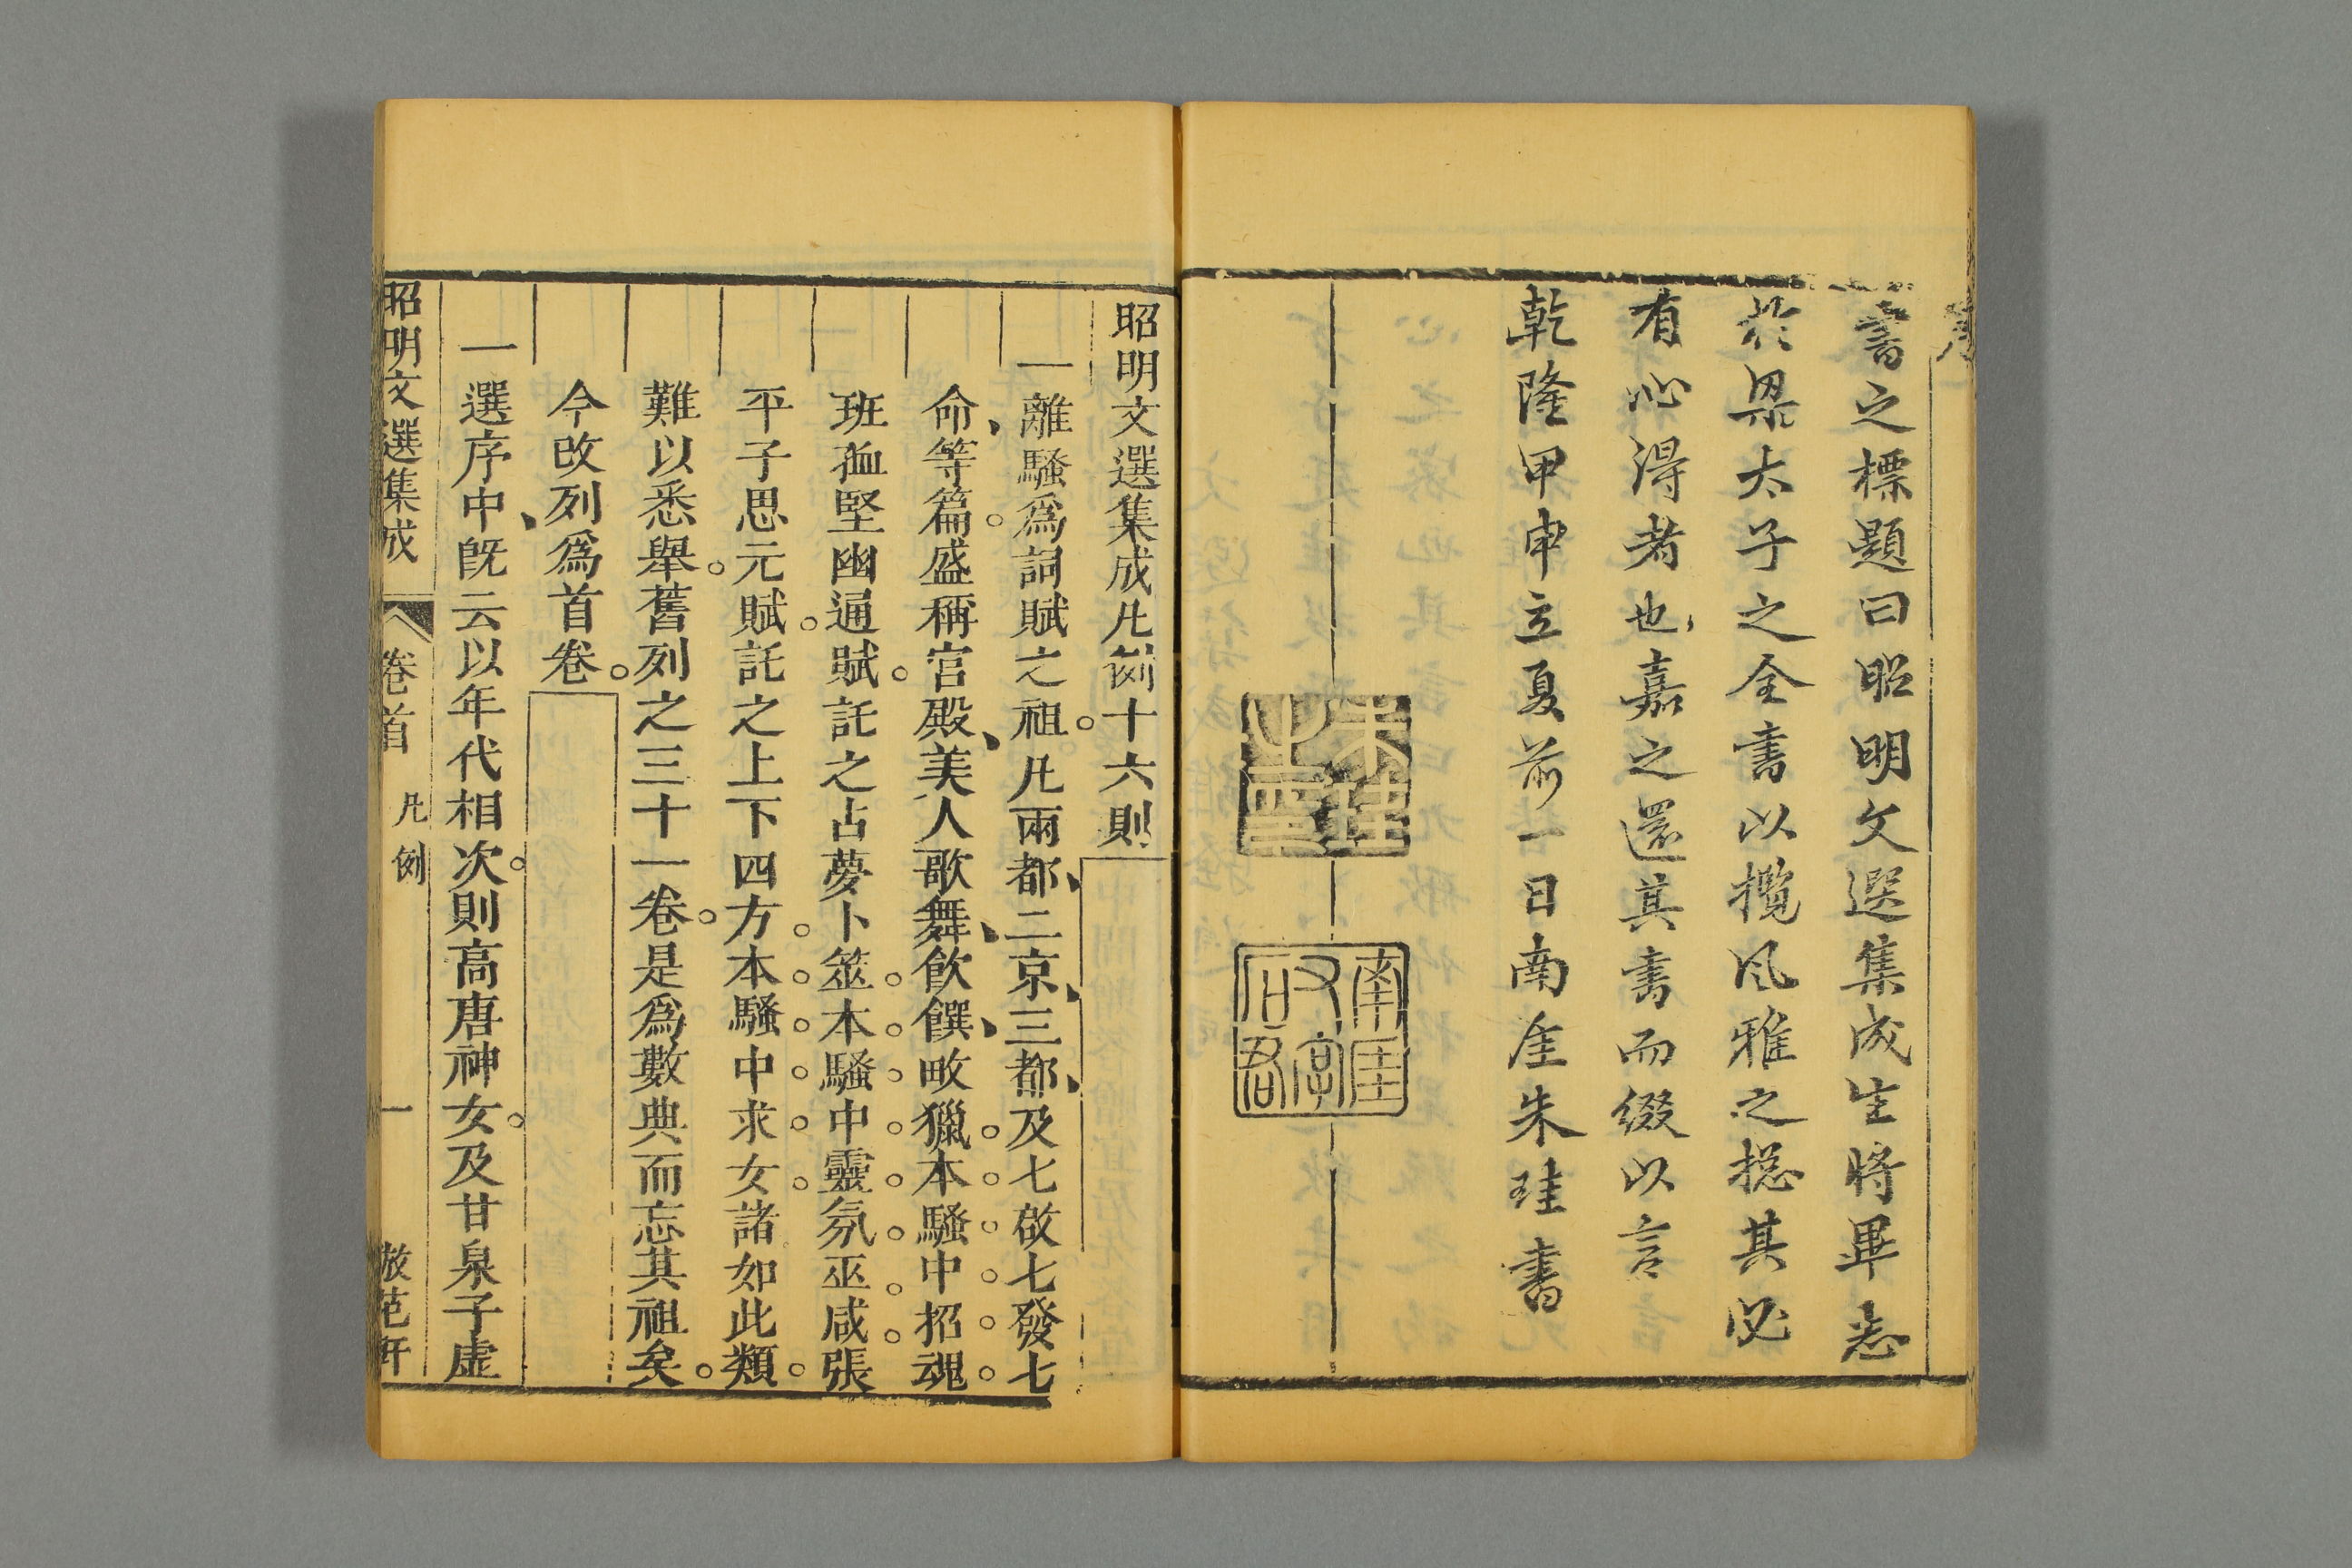 序
書之標題曰昭明文選集成生將畢志
於梁太子之全書以攬風雅之捴其必
有心淂者也嘉之還其書而綴以言
乾隆甲申立夏前一日南厓朱珪書
朱珪之印
昭明文選集成凡例十六則
一離騷爲詞賦之祖。凡兩都、二京、三都、及七啟七發七
命、等篇。盛稱宮殿、美人歌舞、飲饌、畋獵。本騷中招魂
班孤堅幽通賦。託之占夢卜筮本騷中靈氛巫咸張
平子思元賦。託之上下四方本騷中求女諸如此類。
難以悉舉。舊列之三十一卷。是爲數典而忘其祖矣。
今改列爲首卷。
一選序中、旣云以年代相次。則高唐神女。及甘泉子虛
昭明文選集成 卷首 凡例 一